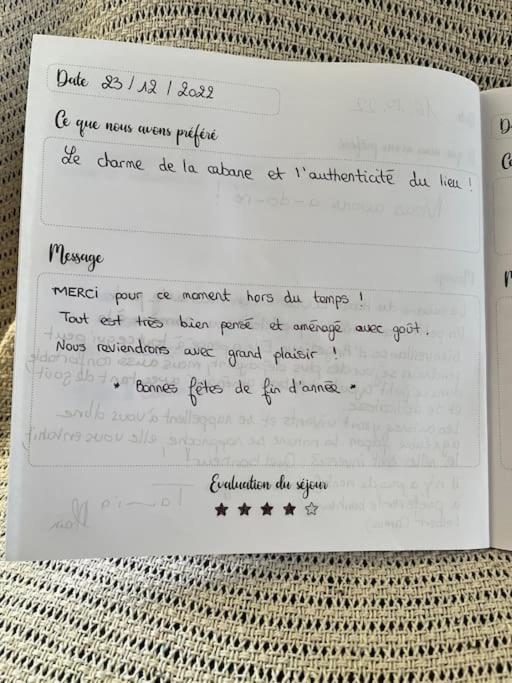 Date 23/12/2022
Ce que nous avons préféré
Le charme de la cabane et l'authenticité du lieu !
Message
MERCi pour ce moment hors du temps !
Tout est très bien pensé et aménagé avec goût.
Nous reviendrons avec grand plaisir !
* Bonnes fêtes de fin d'année *
Evaluation du séjour